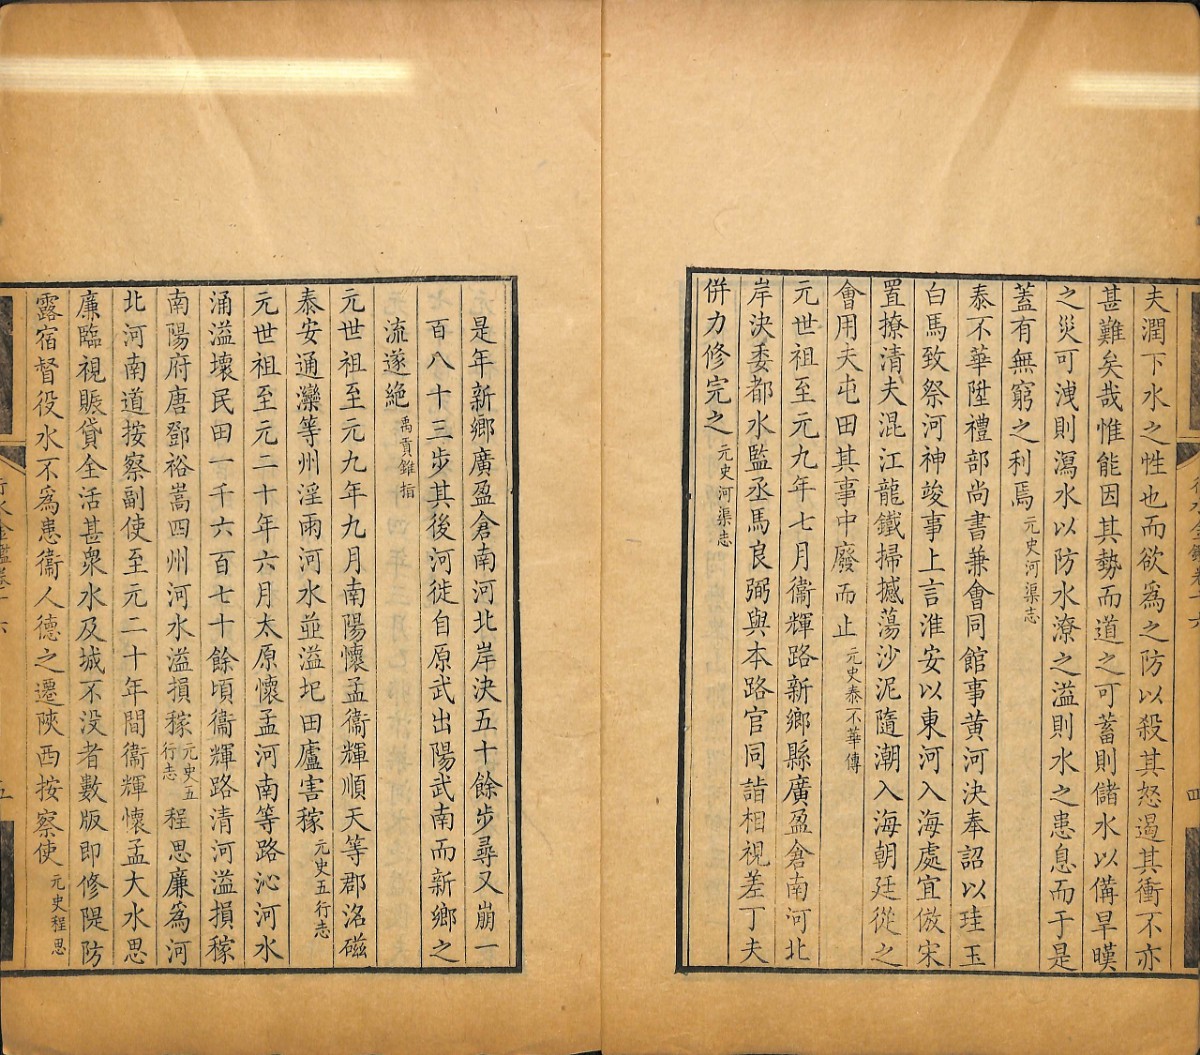 夫潤下水之性也而欲爲之防以殺其怒遏其衝不亦
甚難矣哉惟能因其勢而道之可蓄則儲水以備旱暵
之災可洩則瀉水以防水潦之溢則水之患息而于是
蓋有無窮之利焉元史河渠志
泰不華陞禮部尚書兼會同館事黄河決奉詔以珪玉
白馬致祭河神竣事上言淮安以東河入海處宜倣宋
置撩清夫混江龍鐵掃撼蕩沙泥隨潮入海朝廷從之
會用夫屯田其事中廢而止元史泰不華傳
元世祖至元九年七月衞輝路新鄉縣廣盈倉南河北
岸決委都水監丞馬良弼與本路官同詣相視差丁夫
併力修完之元史河渠志
四
是年新鄉廣盈倉南河北岸決五十餘步尋又崩一
百八十三步其後河徙自原武出陽武南而新鄉之
流遂絶禹貢錐指
元世祖至元九年九月南陽懷孟衞輝順天等郡洺磁
泰安通灤等州淫雨河水並溢圯田廬害稼元史五行志
元世祖至元二十年六月太原懷孟河南等路沁河水
涌溢壞民田一千六百七十餘頃衞輝路清河溢損稼
南陽府唐鄧裕嵩四州河水溢損稼元史五行志程思廉爲河
北河南道按察副使至元二十年間衞輝懷孟大水思
廉臨視賑貸全活甚衆水及城不没者數版即修隄防
露宿督役水不爲患衞人德之遷陝西按察使元史程思
行水金鑑卷十六
五